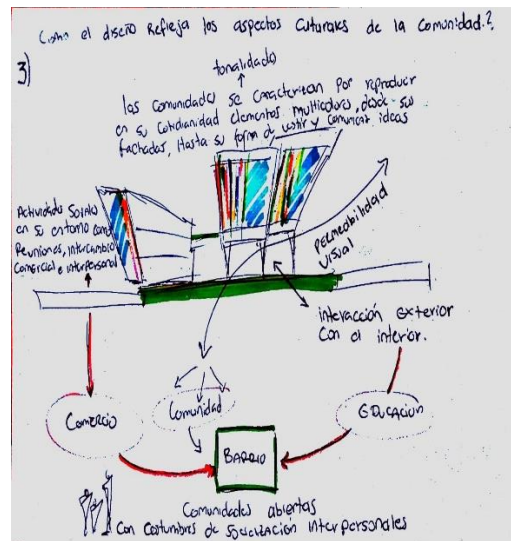 Como el diseño Refleja los aspectos Culturales de la Comunidad.?
3)
tonalidades
las Comunidades se Caracterizan Por reproducir
en su Cotidianidad elementos multicolores, desde sus
fachadas, Hasta su forma de vestir y comunicar ideas
Actividades Sociales
en su entorno como
Reuniones, intercambio
Comercial e interpersonal
PERMEABILIDAD
VISUAL
interacción exterior
Con el interior.
Comercio
Comunidad
EDUCACION
BARRIO
Comunidades abiertas
Con Costumbres de Socialización interpersonales